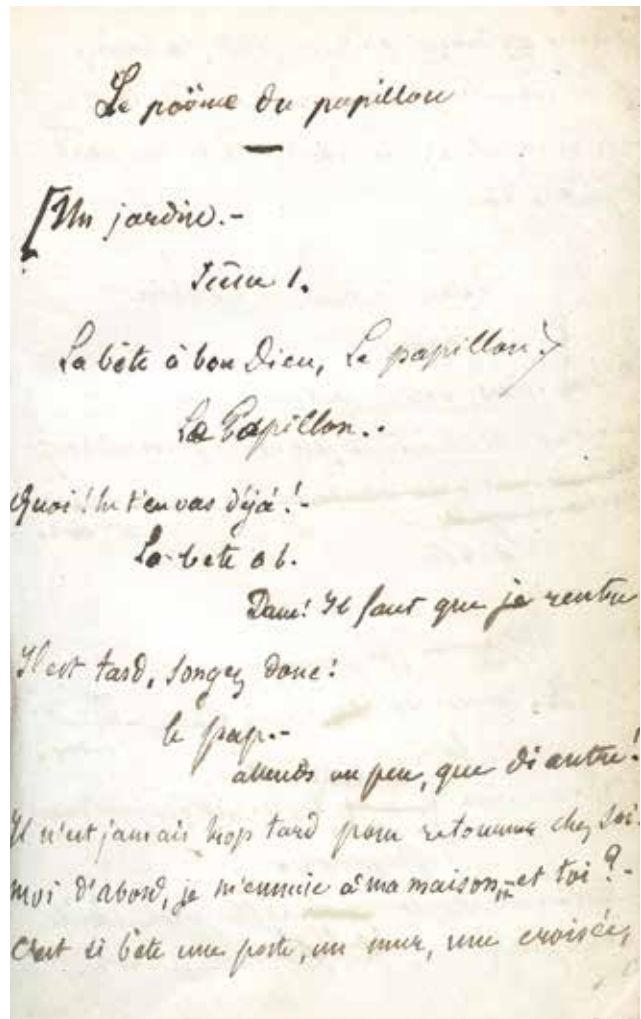 Le poëme du papillon
[Un jardin.-
Scène 1.
La bête à bon Dieu, Le papillon.
Le Papillon..
Quoi! tu t'en vas déjà!-
La bête à b.
Dam! Il faut que je rentre
Il est tard, songez donc!
le pap.-
attends un peu, que diantre!
Il n'est jamais trop tard pour retourner chez soi.
moi d'abord, je m'ennuie à ma maison, et toi?-
C'est si bête une porte, un mur, une croisée,